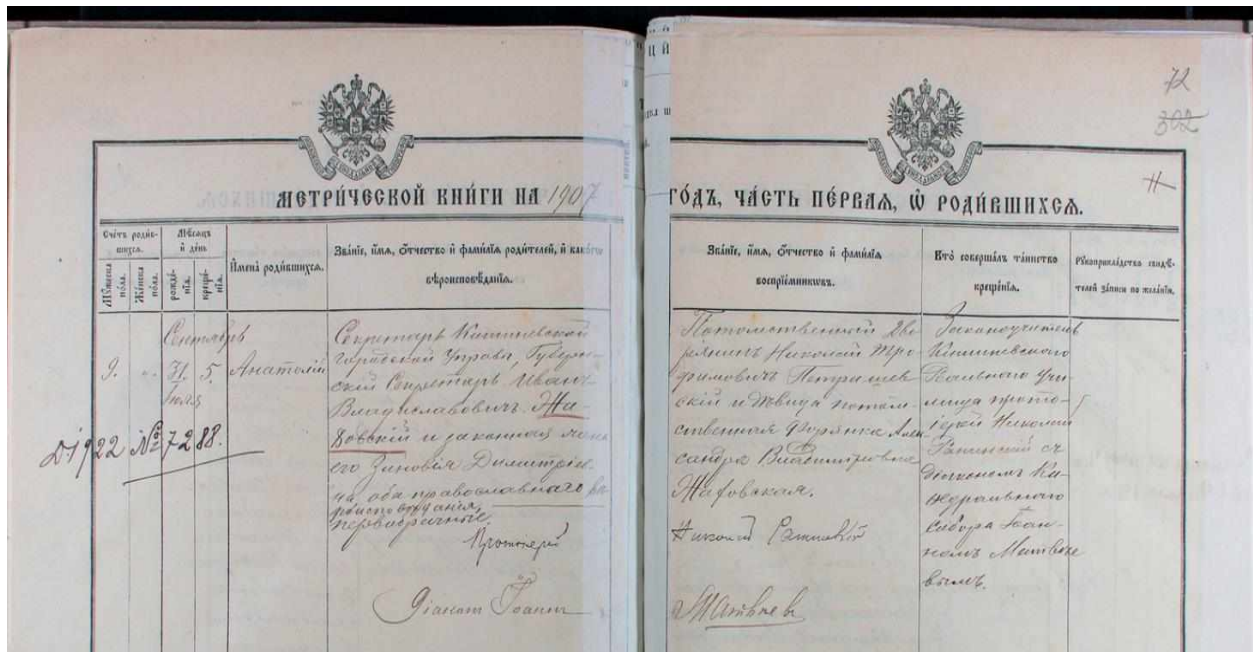 72
302
МЕТРИ́ЧЕСКОЙ КНИ́ГИ НА 1907
ГО́ДЪ, ЧА́СТЬ ПЕ́РВАѦ, Ѡ҆ РОДИ́ВШИХСѦ.
Счетъ родив-
шихсѧ.
Мꙋжеска
пола.
Женска
пола.
Мѣсѧцъ
и день
рожде-
нїѧ.
креще-
нїѧ.
Имена родившихсѧ.
Званїе, имѧ, отчество и фамилїѧ родителей, и какогѡ
вѣроисповѣданїѧ.
Званїе, имѧ, отчество и фамилїѧ
воспрїемниковъ.
Кто совершалъ таинство
крещенїѧ.
Рꙋкоприкладство свидѣ-
телей записи по желанїю.
Сентябрь
9. " 31. 5.
Іюля
Анатолій
Д1922 № 7288.
Секретарь Кишиневской
городской Управы, Губерн-
скій Секретарь Иванъ
Владиславовичъ
и законная жена
его Зиновія Димитріев-
на, оба православнаго вѣ-
роисповѣданія,
первобрачные.
Протоіерей
Діаконъ Іоаннъ
Потомственный дво-
рянинъ Николай Тро-
фимовичъ
скій и дѣвица потом-
ственная дворянка Алек-
сандра Владиміровна
Николай
Матвѣевъ
Законоучитель
Кишиневскаго
Реальнаго Учи-
лища прото-
іерей Николай
съ
діакономъ Ка-
ѳедральнаго
собора Іоан-
номъ Матвѣе-
вымъ.